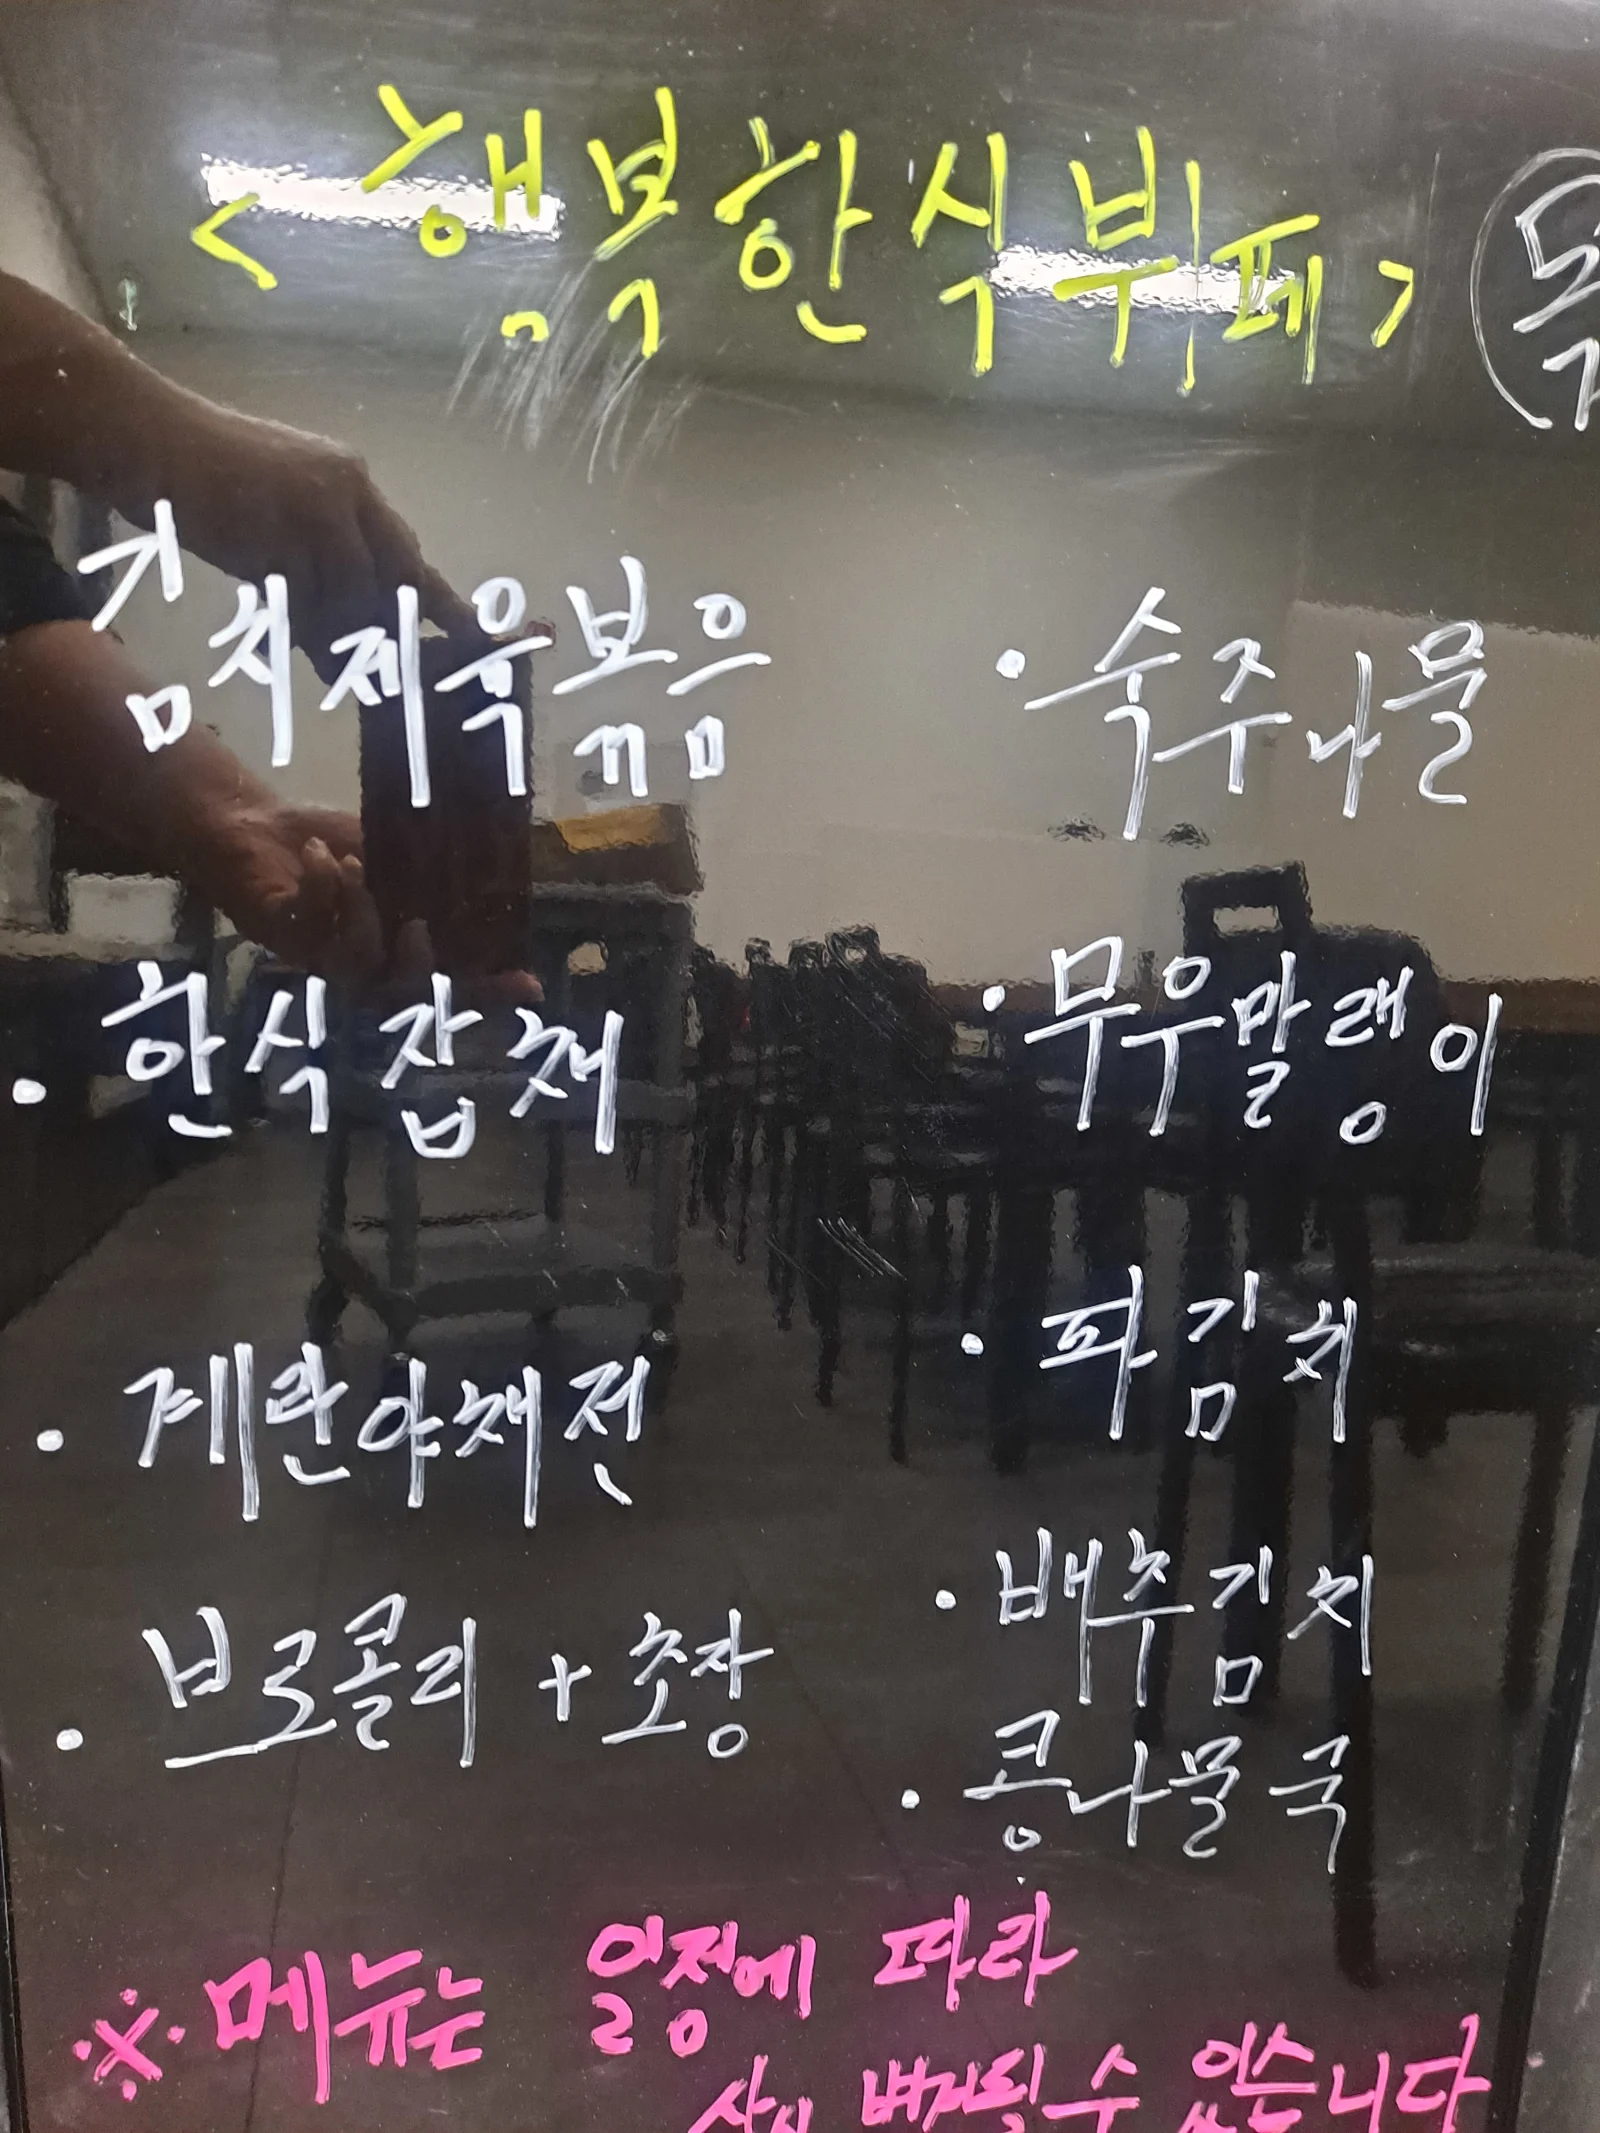 <행복한식뷔페>
김치제육볶음
· 한식잡채
· 계란야채전
· 브로콜리 + 초장
· 숙주나물
· 무우말랭이
· 파김치
· 배추김치
· 콩나물국
※ 메뉴는 일정에 따라
변경될 수 있습니다